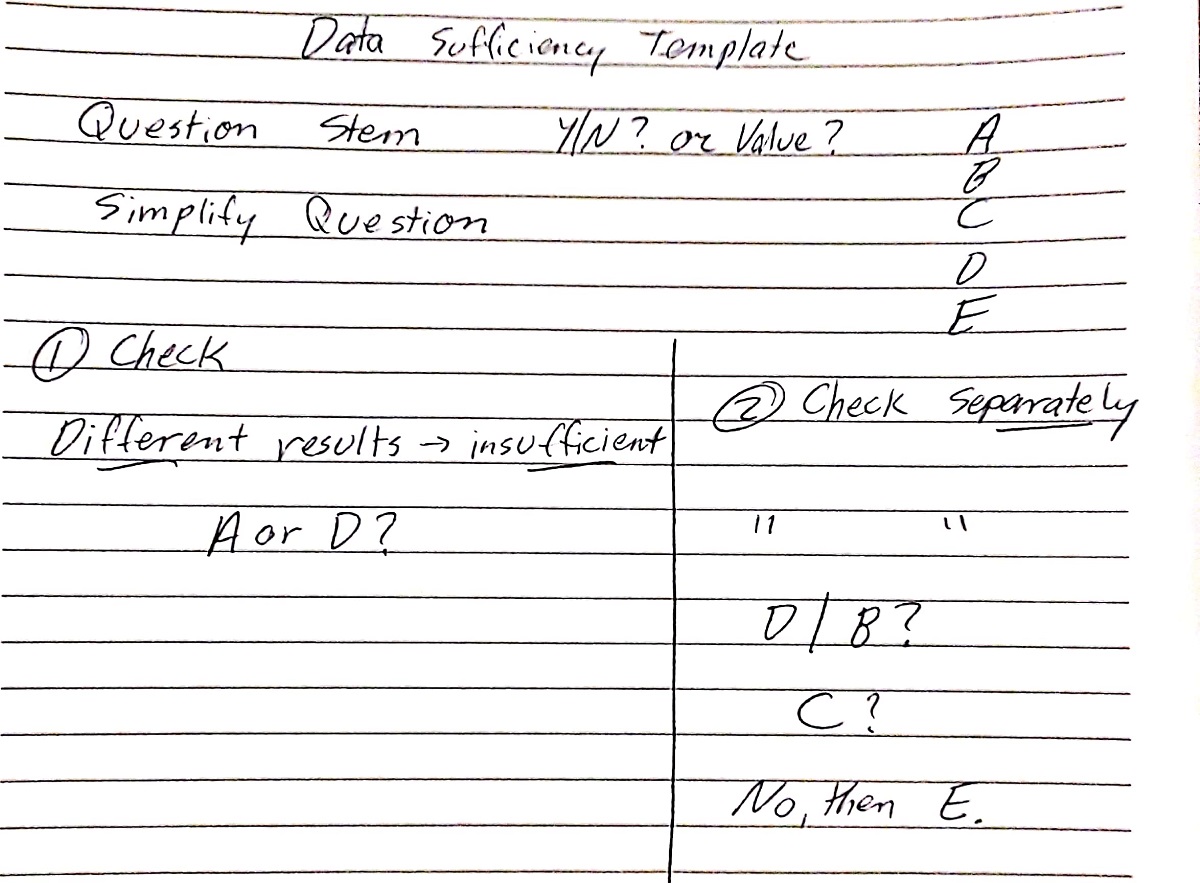 Data Sufficiency Template
Question Stem Y/N? or Value? A
B
Simplify Question C
D
E
① Check
Different results → insufficient
A or D?
② Check Separately
" "
D / B?
C?
No, then E.